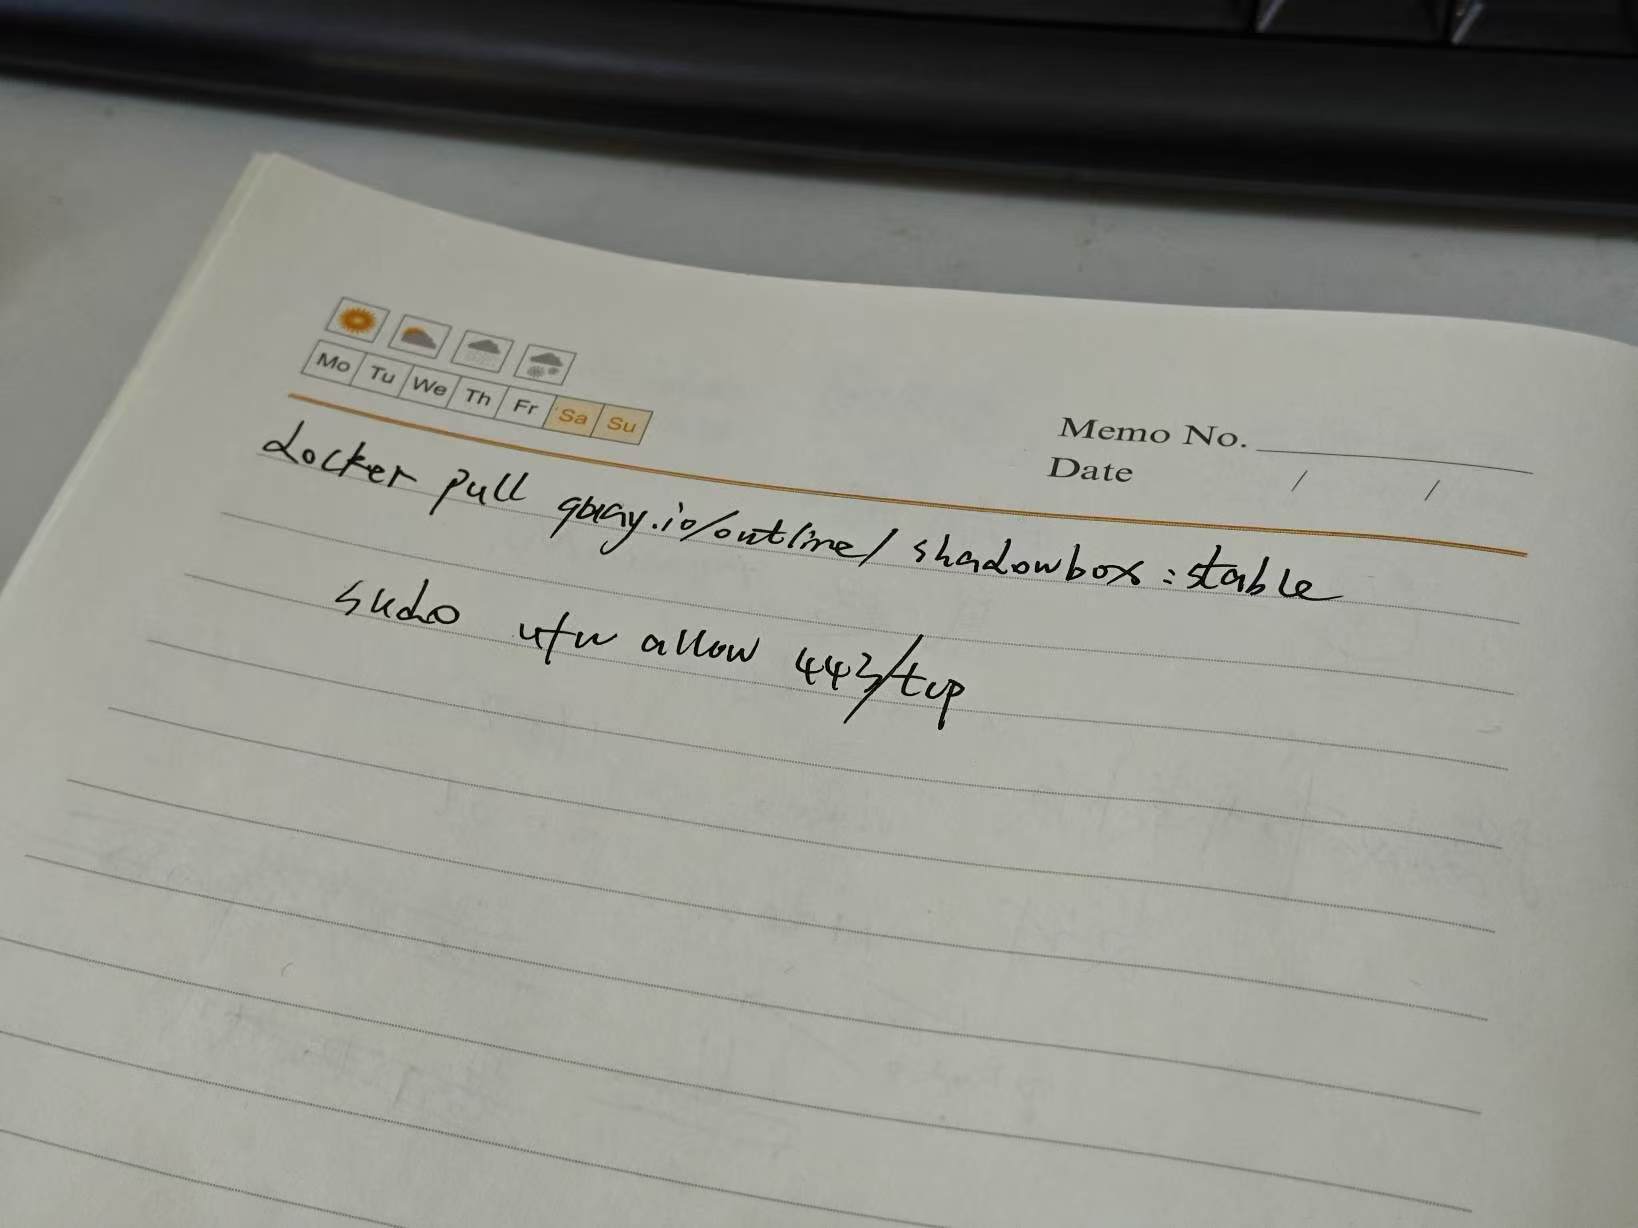 Mo Tu We Th Fr Sa Su
Memo No.
Date / /
docker pull quay.io/outline/shadowbox:stable
sudo ufw allow 443/tcp